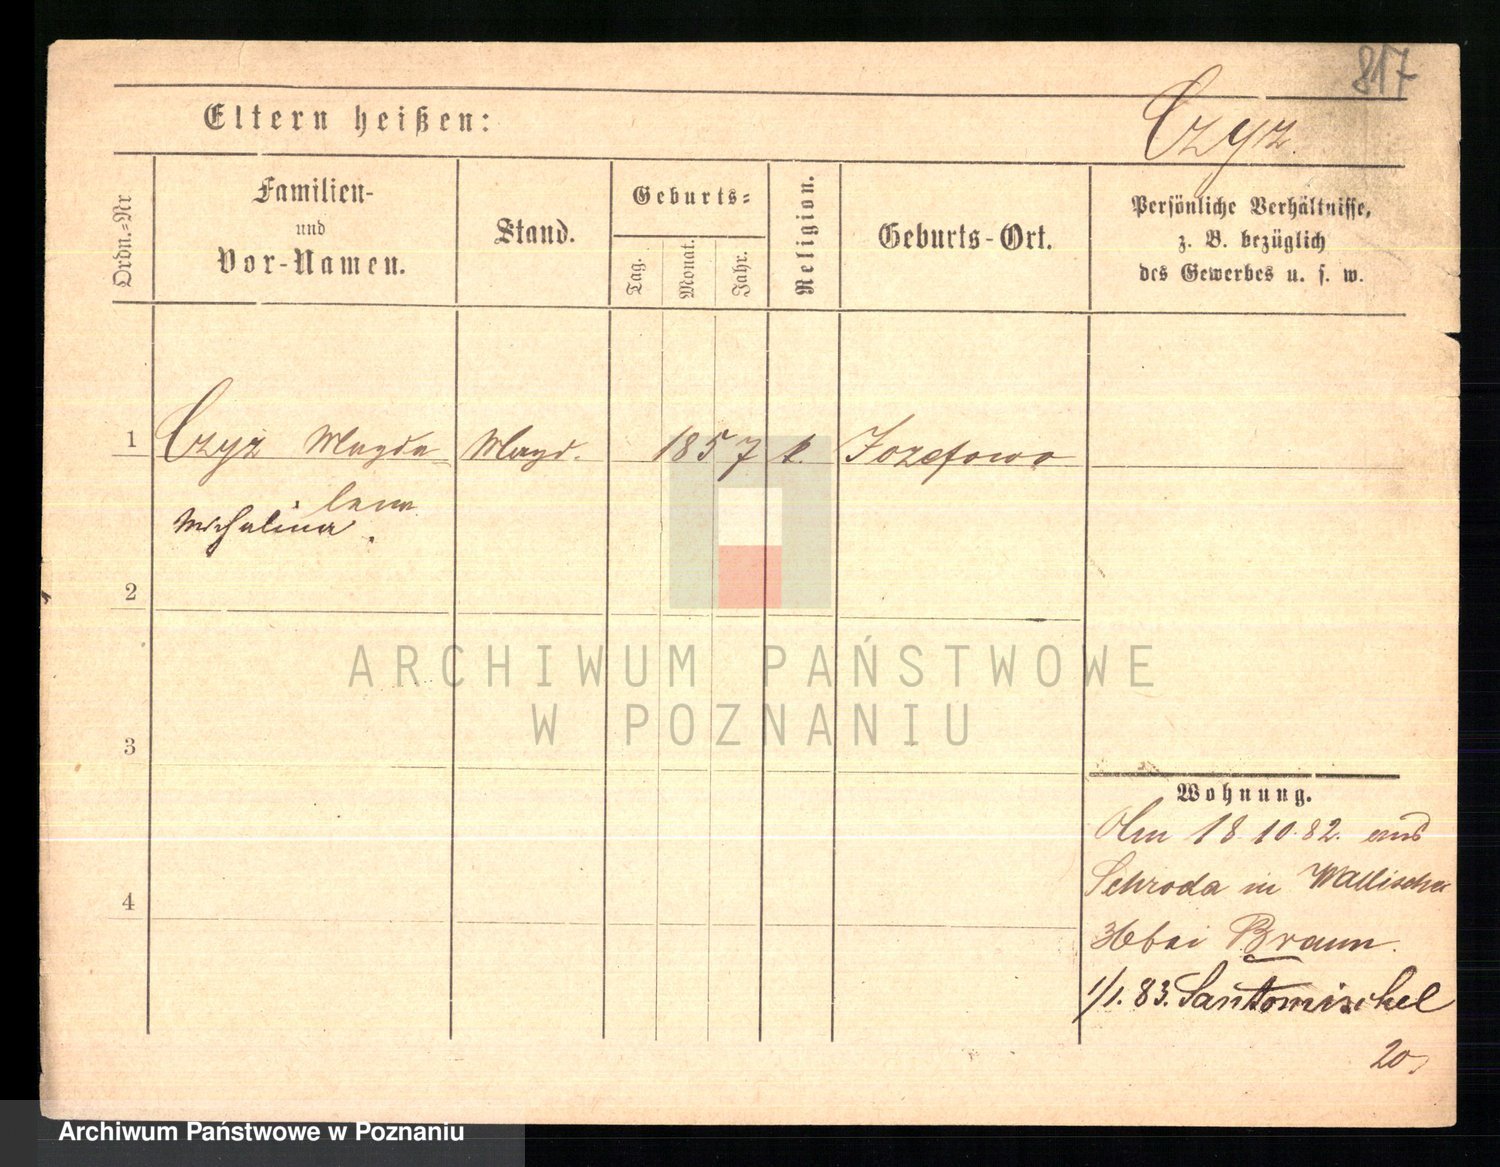 817
Eltern heißen:
Czyz.
Ordn.-Nr
Familien-
und
Vor-Namen.
Stand.
Geburts-
Tag.
Monat.
Jahr.
Religion.
Geburts-Ort.
Persönliche Verhältnisse,
z. B. bezüglich
des Gewerbes u. s. w.
1 Czyz Magda Magd. 1857 k. Jozefowo
lena
Michalina.
2
3
4
ARCHIWUM PAŃSTWOWE
W POZNANIU
Wohnung.
18.10.82. aus
Schroda in Wallischei
36 bei Braun.
1/1. 83. Santomischel
20
Archiwum Państwowe w Poznaniu